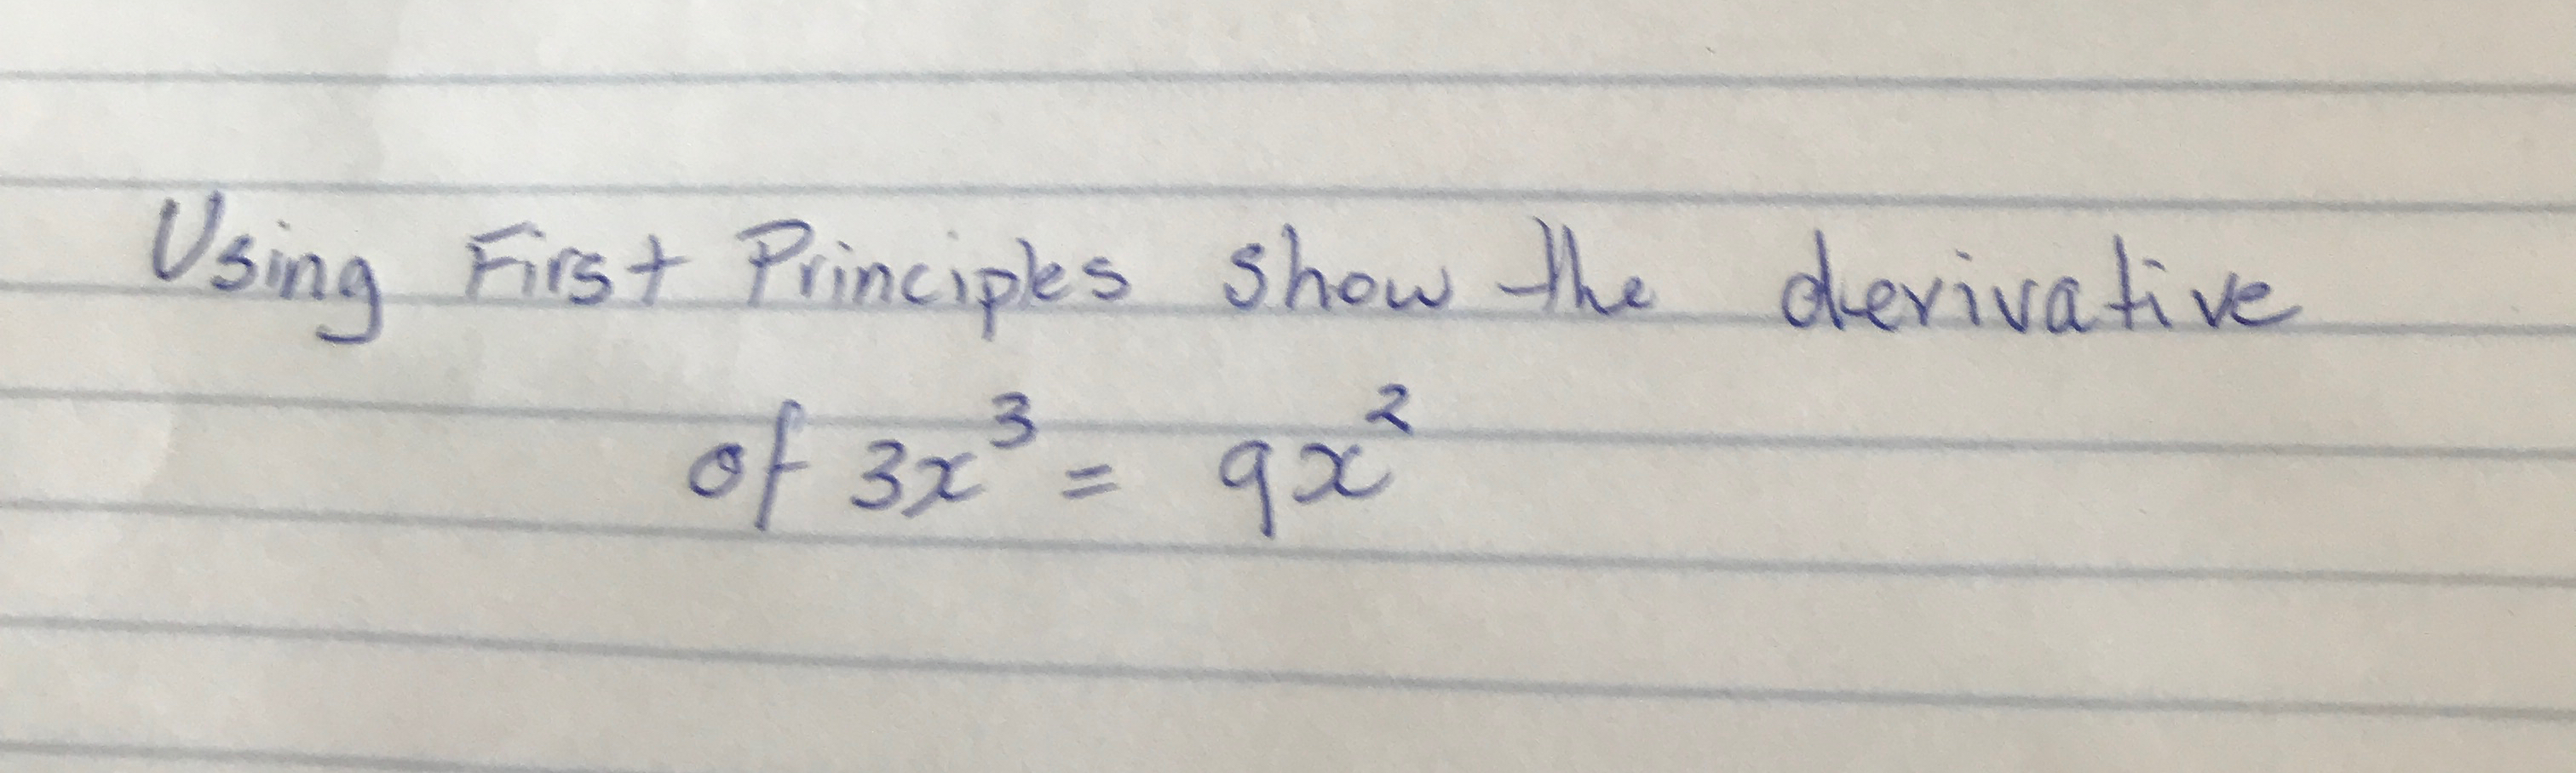 Using First Principles show the derivative
of 3x³ = 9x²